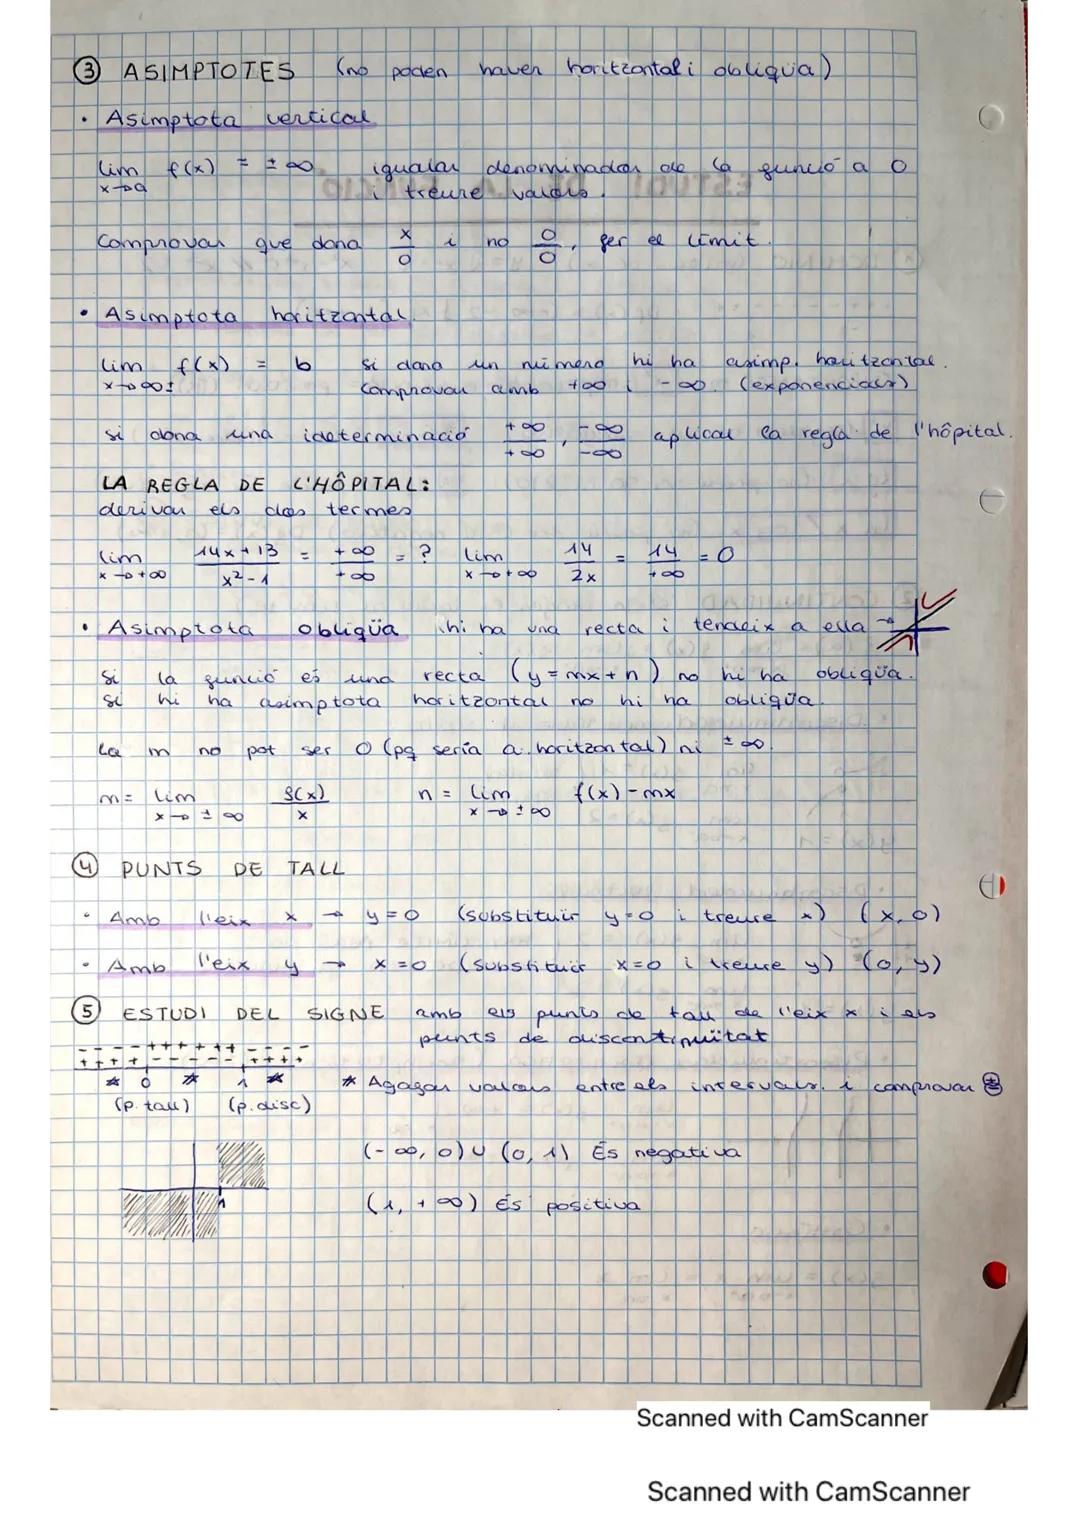 ③ ASIMPTOTES (no poden haver horitzontal i obliqüa)
• Asimptota vertical
lim f(x) = ±∞ igualar denominador de la funció a 0
x→a i treure valors.
Comprovar que dona x/0 i no 0/0, fer el límit.
• Asimptota horitzontal.
lim f(x) = b si dona un número hi ha asimp. horitzontal.
x→∞± Comprovar amb +∞ i -∞. (exponencials)
si dona una ideterminació +∞/+∞, -∞/-∞ aplicar la regla de l'hôpital.
LA REGLA DE L'HÔPITAL:
derivar els dos termes
lim 14x+13/x²-1 = +∞/+∞ = ? lim 14/2x = 14/+∞ = 0
x→+∞ x→+∞
• Asimptota obliqüa hi ha una recta i tendeix a ella →
Si la funció és una recta (y=mx+n) no hi ha obliqüa.
si hi ha asimptota horitzontal no hi ha obliqüa.
La m no pot ser 0 (pq seria a. horitzontal) ni ±∞.
m= lim f(x)/x n = lim f(x)-mx
x→±∞ x→±∞
④ PUNTS DE TALL
• Amb l'eix x → y=0 (substituir y=0 i treure x) (x,0)
• Amb l'eix y → x=0 (substituir x=0 i treure y) (0,y)
⑤ ESTUDI DEL SIGNE amb els punts de tall de l'eix x i els
punts de discontinuïtat
- - - - + + + + + + - - - -
+ + + + - - - - - + + + +
* 0 * 1 * * Agagar valors entre els intervals. i comprovar
(p. tall) (p. disc)
(-∞, 0) ∪ (0, 1) És negativa
1
(1, +∞) És positiva
Scanned with CamScanner
Scanned with CamScanner